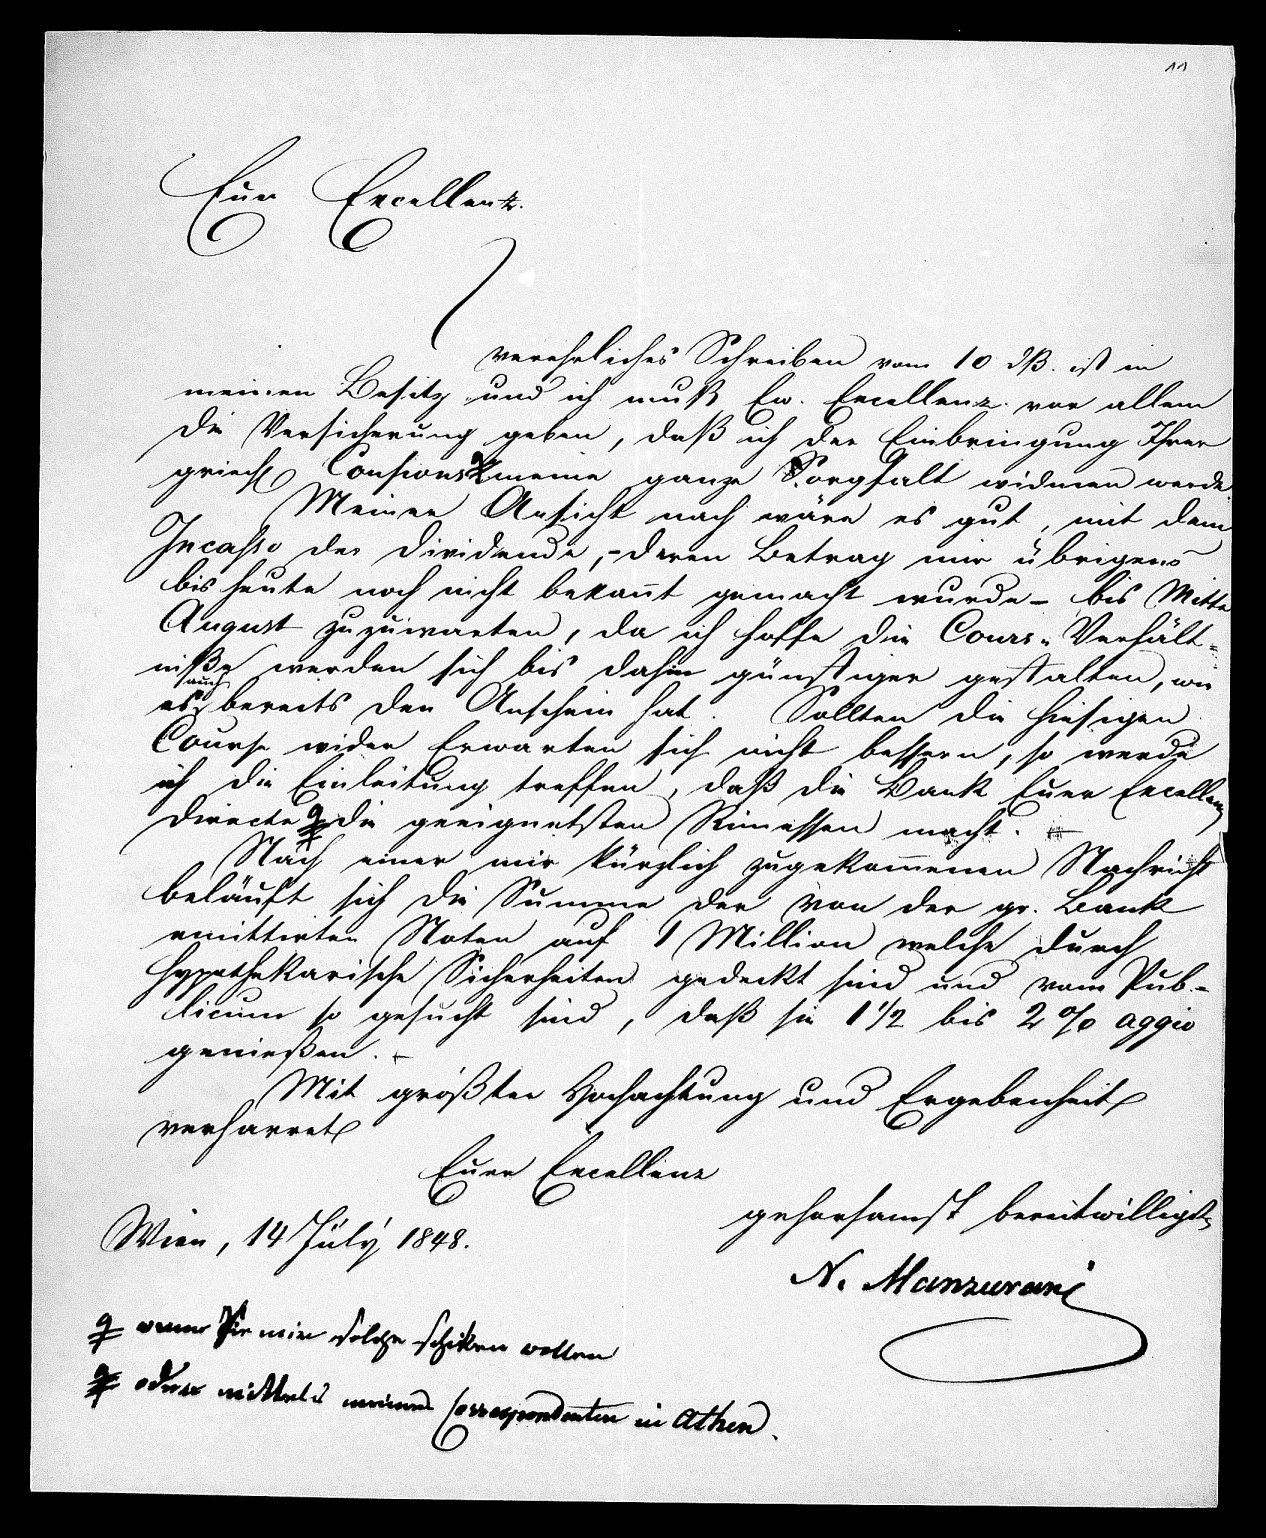 11
Euer Excellenz.
verehrliches Schreiben vom 10 dß. ist in
meinen Besitz und ich muß Ew. Excellenz vor allem
die Versicherung geben, daß ich der Einbringung Ihrer
griech meine ganze Sorgfalt widmen werde.
Meiner Ansicht nach wäre es gut, mit dem
Incasso der Dividende, - deren Betrag mir übrigens
bis heute noch nicht bekañt gemacht wurde - bis Mitte
August zuzuwarten, da ich hoffe die Cours-Verhält-
niße werden sich bis dahin günstiger gestalten, wie
auch
es bereits den Anschein hat. Sollten die hiesigen
Course wider Erwarten sich nicht bessern, so werde
ich die Einleitung treffen, daß die Bank Euer Excellenz
directe die geeignetsten Rimessen macht. -
Nach einer mir kürzlich zugekom̅enen Nachricht
beläuft sich die Summe der von der gr. Bank
emittirten Noten auf 1 Million welche durch
hypothekarische Sicherheiten gedeckt sind und vom Pub-
licum so gesucht sind, daß sie 1 1/2 bis 2 % aggio
genießen. -
Mit größter Hochachtung und Ergebenheit
verharret
Euer Excellenz
gehorsamst bereitwilligst
Wien, 14 Jüly 1848.
N. Manzurani
wenn Sie mir solche schiken wollen
oder mittels meines Correspondenten in Athen.